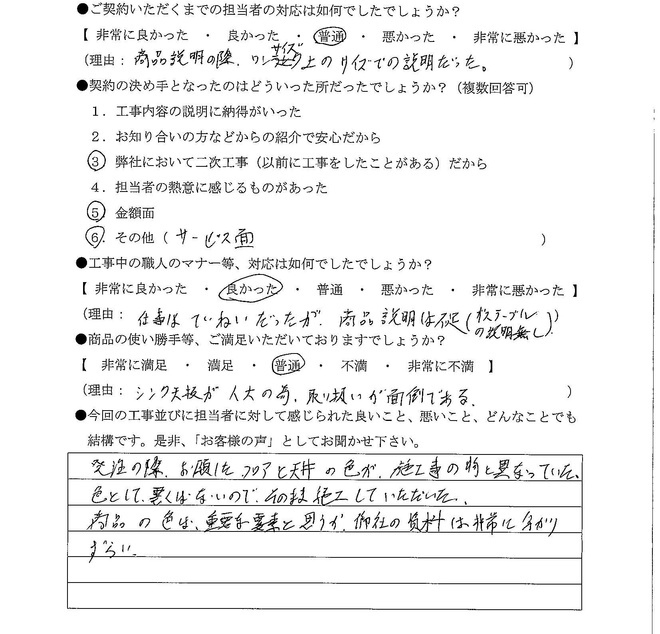 ●ご契約いただくまでの担当者の対応は如何でしたでしょうか？
【 非常に良かった ・ 良かった ・ 普通 ・ 悪かった ・ 非常に悪かった 】
（理由： 商品説明の際、ワンサイズ上のサイズでの説明だった。 ）
●契約の決め手となったのはどういった所だったでしょうか？（複数回答可）
１．工事内容の説明に納得がいった
２．お知り合いの方などからの紹介で安心だから
３．弊社において二次工事（以前に工事をしたことがある）だから
４．担当者の熱意に感じるものがあった
５．金額面
６．その他（ サービス面 ）
●工事中の職人のマナー等、対応は如何でしたでしょうか？
【 非常に良かった ・ 良かった ・ 普通 ・ 悪かった ・ 非常に悪かった 】
（理由： 仕事はていねいだったが、商品説明は不足（ の説明無し）。）
●商品の使い勝手等、ご満足いただいておりますでしょうか？
【 非常に満足 ・ 満足 ・ 普通 ・ 不満 ・ 非常に不満 】
（理由： シンク天板が人大の為、取り扱いが面倒である。 ）
●今回の工事並びに担当者に対して感じられた良いこと、悪いこと、どんなことでも
結構です。是非、「お客様の声」としてお聞かせ下さい。
発注の際、お願したフロアと天井の色が、施工事の時と異なっていた。
色として、悪くはないので、そのまま施工していただいた。
商品の色は、重要な要素と思うが、御社の資料は非常に分かり
ずらい。